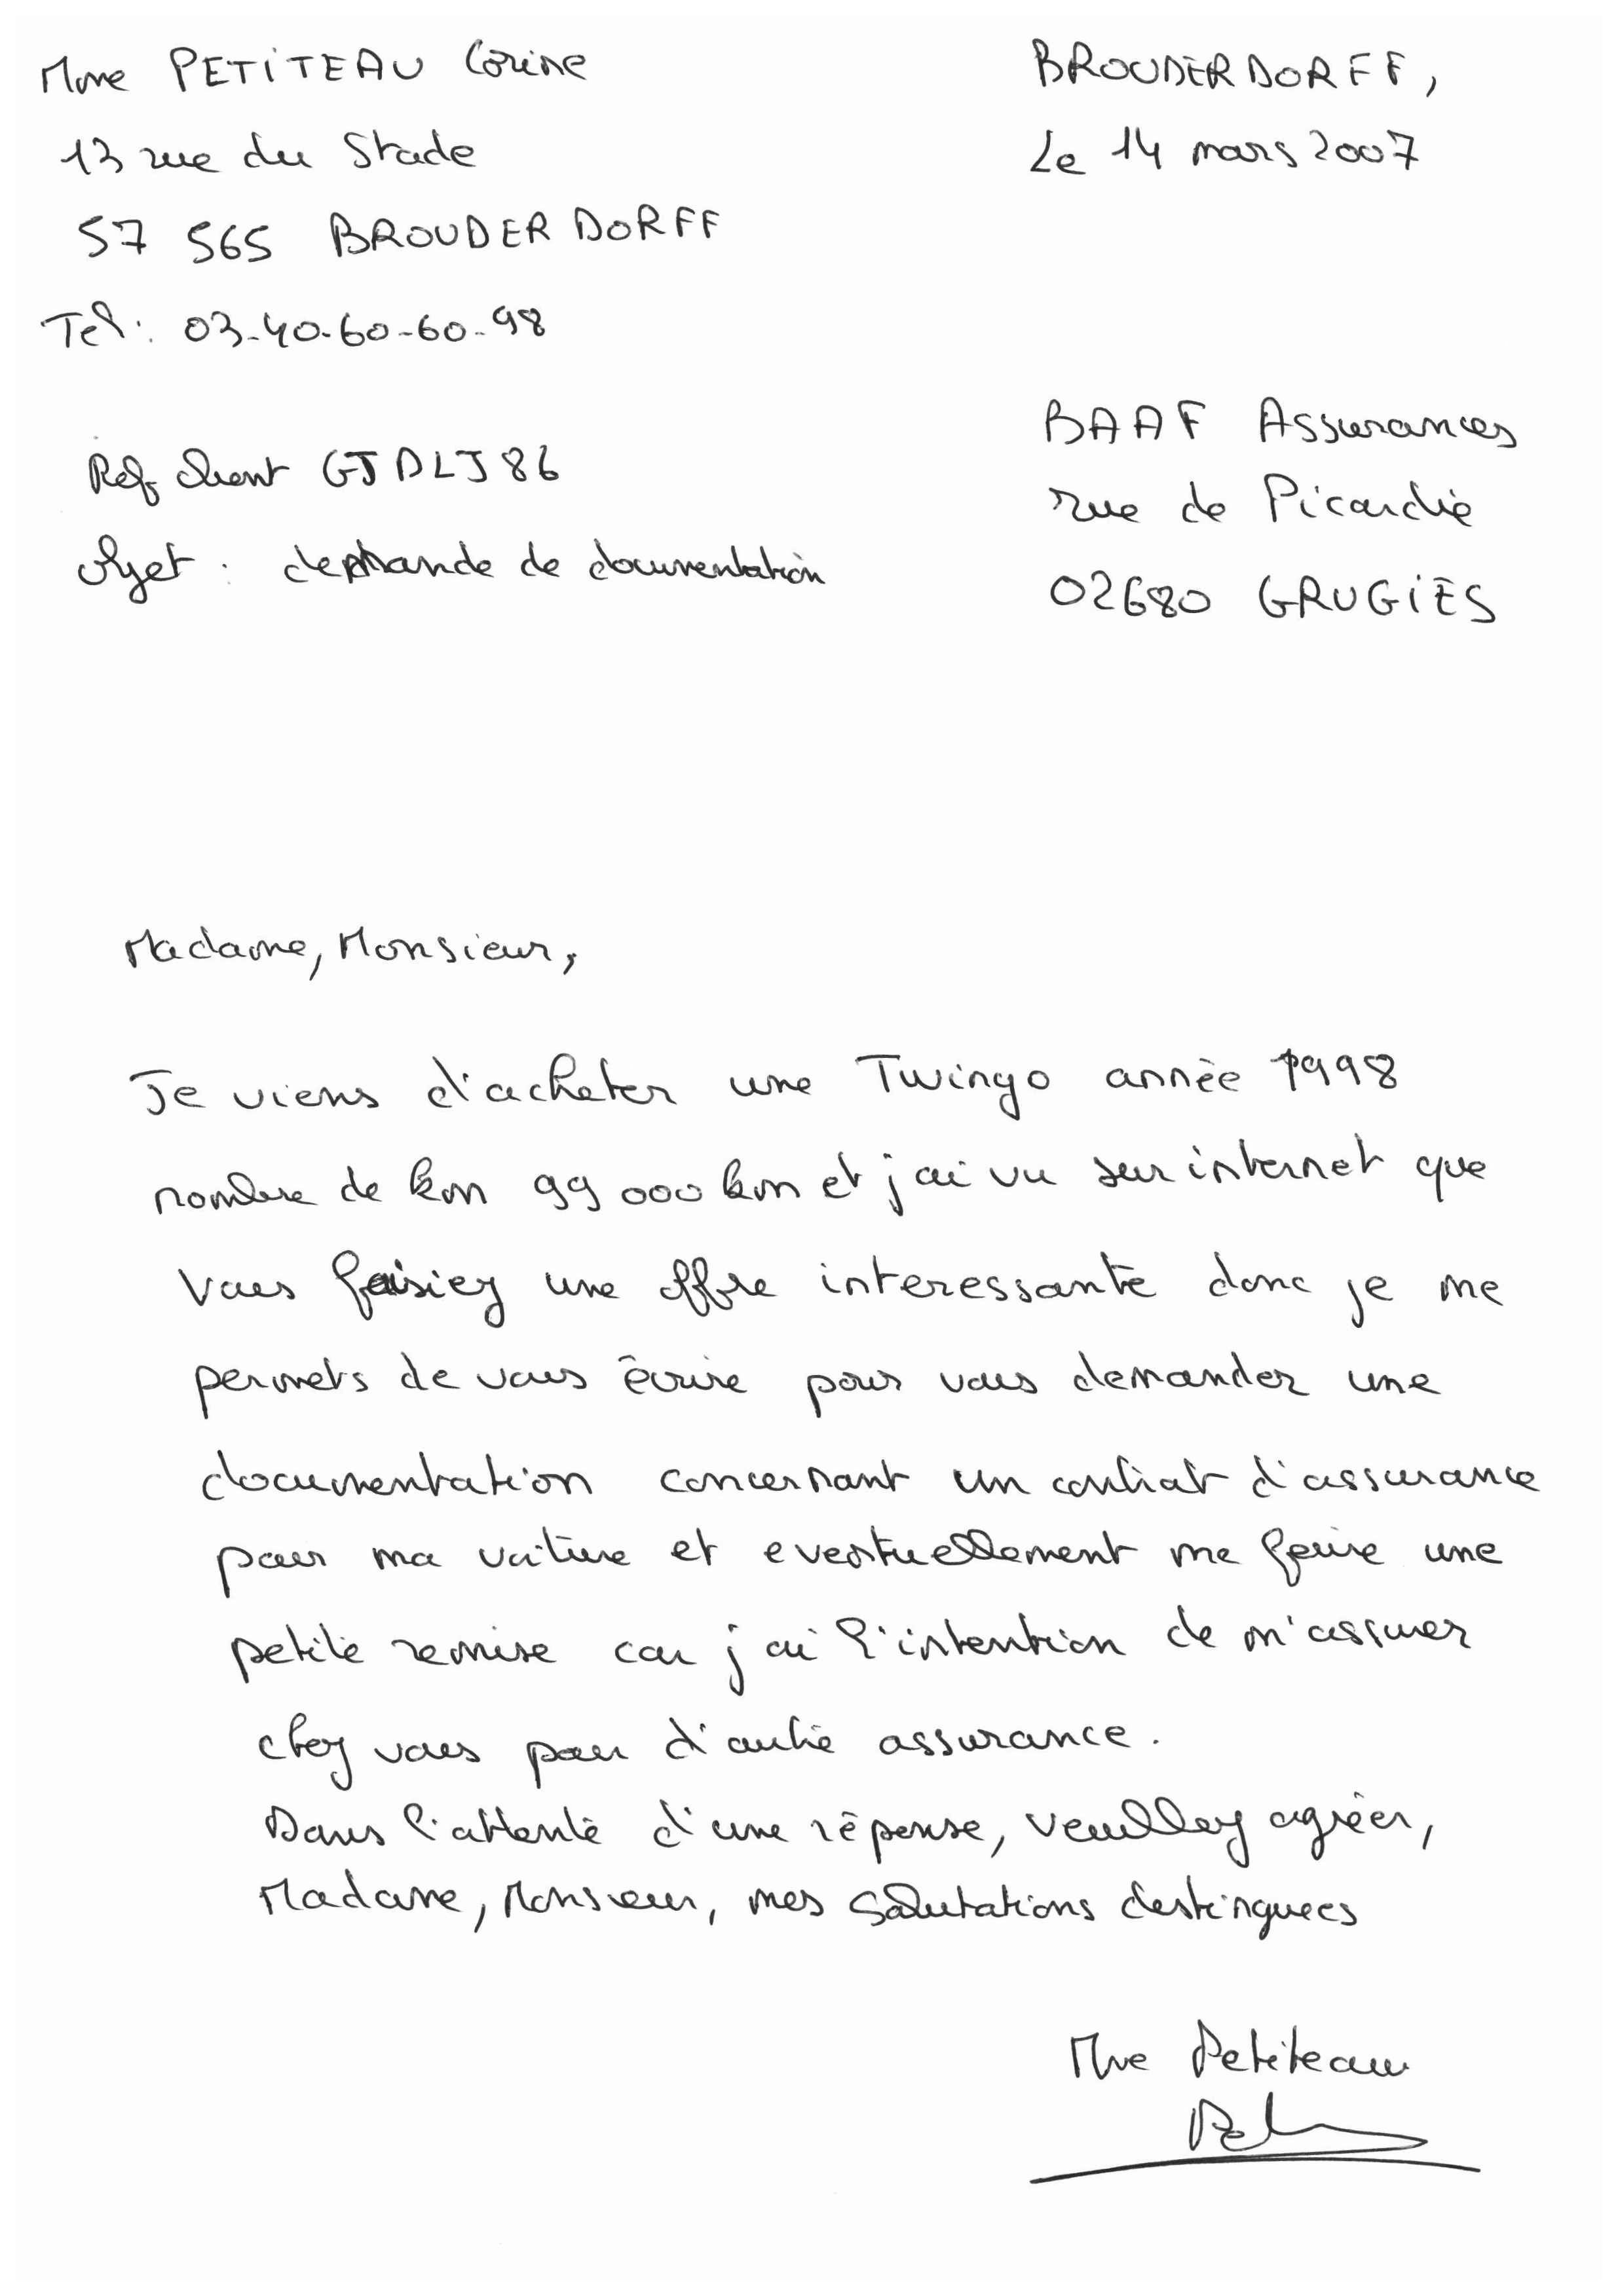 Mme PETITEAU Corine
13 rue du Stade
57 565 BROUDERDORFF
Tel : 03-40-60-60-98
BROUDERDORFF,
Le 14 mars 2007
Ref client GJDLJ86
objet : demande de documentation
BAAF Assurances
rue de Picardie
02680 GRUGIES
Madame, Monsieur,
Je viens d'acheter une Twingo année 1998
nombre de km 99 000 km et j'ai vu sur internet que
vous faisiez une offre interessante donc je me
permets de vous écrire pour vous demander une
documentation concernant un contrat d'assurance
pour ma voiture et eventuellement me faire une
petite remise car j'ai l'intention de m'assurer
chez vous pour d'autre assurance.
Dans l'attente d'une réponse, veuillez agréer,
Madame, Monsieur, mes salutations destinguees
Mme Petiteau